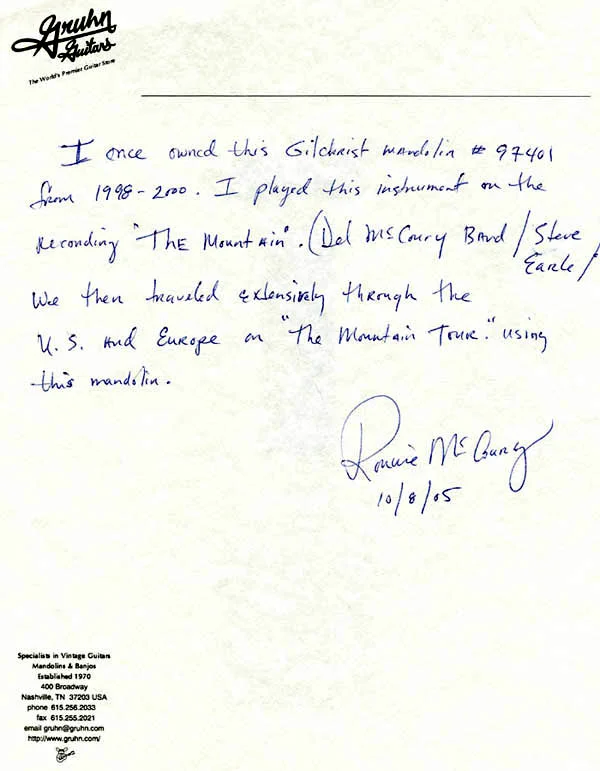 Gruhn
Guitars
The World's Premier Guitar Store
I once owned this Gilchrist mandolin # 97401
from 1998-2000. I played this instrument on the
recording "The Mountain". (Del McCoury Band / Steve
Earle /
We then traveled extensively through the
U.S. and Europe on "The Mountain Tour." using
this mandolin.
Ronnie McCoury
10/8/05
Specialists in Vintage Guitars
Mandolins & Banjos
Established 1970
400 Broadway
Nashville, TN 37203 USA
phone 615.256.2033
fax 615.255.2021
email gruhn@gruhn.com
http://www.gruhn.com/